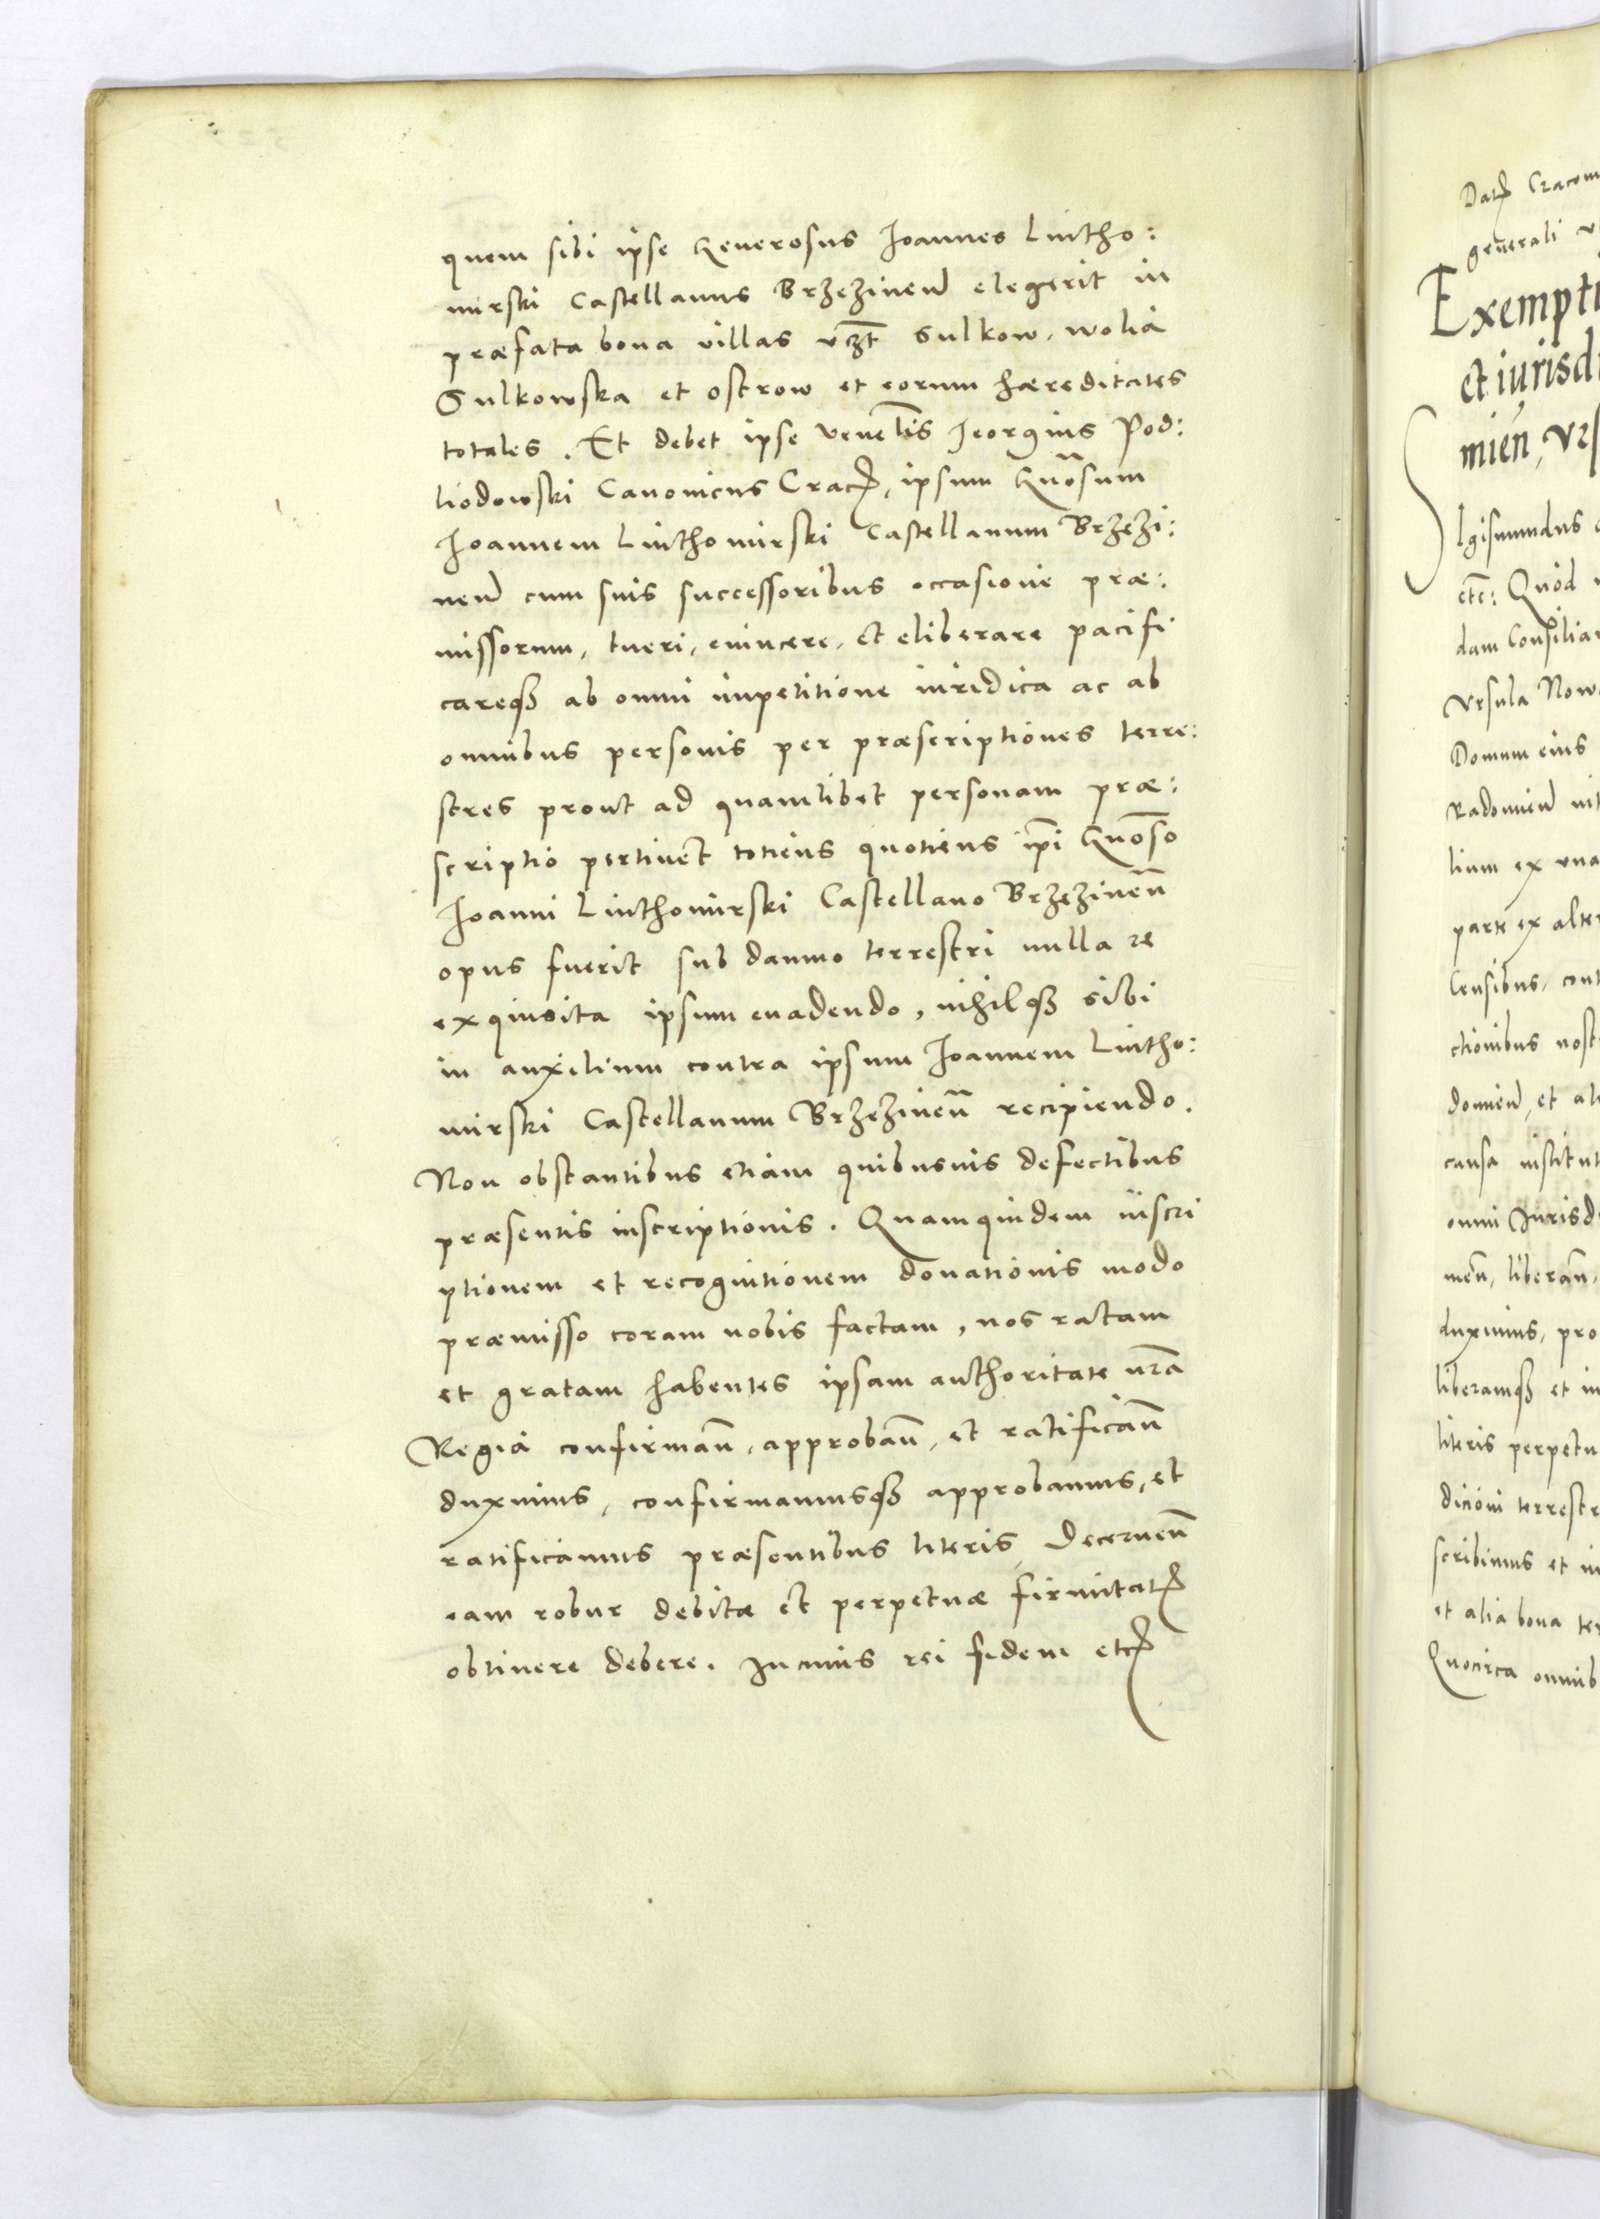 quem sibi ipse Generosus Joannes Lutho:
mirski Castellanus Brzezinen elegerit in
præfata bona villas vczt Sulkow, wolia
Sulkowska et ostrow et eorum hæreditates
totales. Et debet ipse venelis Jeorgius Pod:
liodowski Canonicus Crac, ipsum Gnosum
Joannem Luthomirski Castellanum Brzezi:
nen cum suis successoribus occasione præ:
missorum, tueri, euincere, et eliberare pacifi
careq3 ab omni impetitione iuridica ac ab
omnibus personis per præscriptiones terre:
stres prout ad quamlibet personam præ:
scriptio pertinet totiens quotiens ipi Gnoso
Joanni Luthomirski Castellano Brzezinen
opus fuerit sub damno terrestri nulla re
exquisita ipsum euadendo, nihilq3 sibi
in auxilium contra ipsum Joannem Lutho:
mirski Castellanum Brzezinen recipiendo.
Non obstantibus etiam quibusuis defectibus
præsentis inscriptionis. Quamquidem inscri
ptionem et recognitionem donationis modo
præmisso coram nobis factam, nos ratam
et gratam habentes ipsam authoritate nra
Regia confirman, approban, et ratifican
duximus, confirmamusq3 approbamus, et
ratificamus præsentibus literis, Decernen
eam robur debitæ et perpetuæ firmitat
obtinere debere. In cuius rei fidem etc
Dat Cracou
generali
Exempti
et iurisdi
mien, Vrs
Igismundus
etc: Quod
dam Consiliar
Vrsula Now
Domum eius
Radomien
lium ex vna
parte ex alter
Censibus, cont
ctionibus nost
domien, et ali
causa institut
omni Jurisd
men, liberan,
duximus, pro
liberamq3 et in
literis perpetu
dicioni terrestr
scribimus et in
et alia bona ter
Quocirca omnib